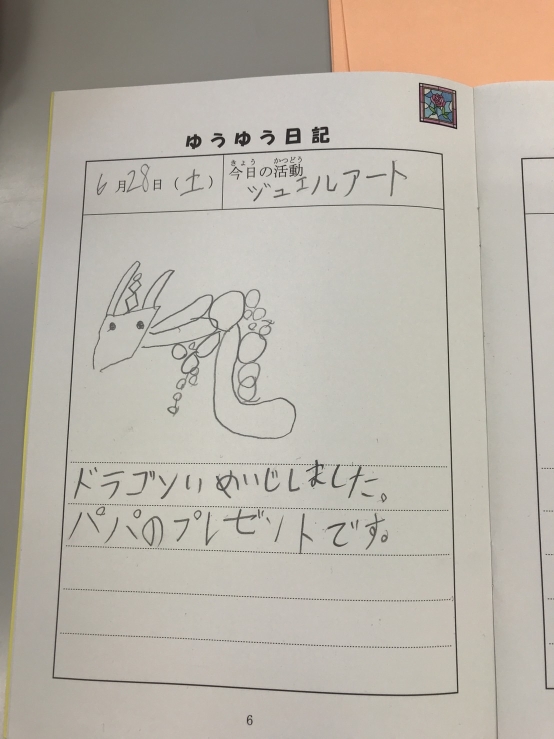 ゆうゆう日記
6月28日(土)
きょう かつどう
今日の活動
ジュエルアート
ドラゴンいめいじしました。
パパのプレゼントです。
6